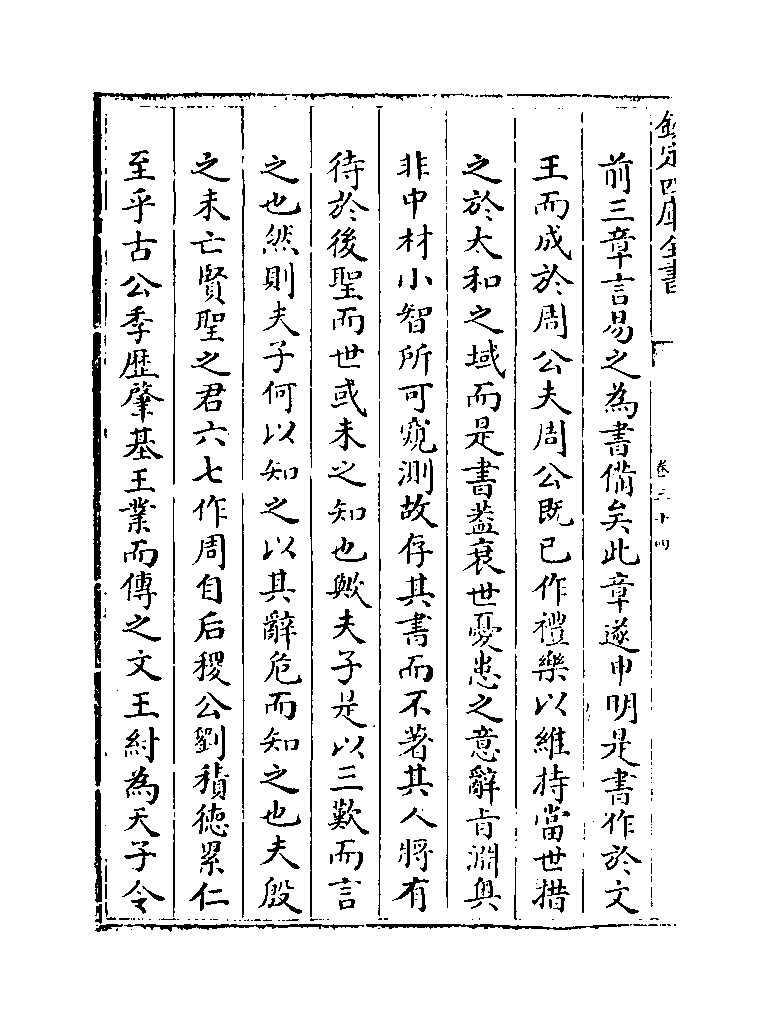 欽定四庫全書
卷三十四
前三章言易之為書備矣此章遂申明是書作於文
王而成於周公夫周公既已作禮樂以維持當世措
之於大和之域而是書葢衰世憂患之意辭旨淵奥
非中材小智所可窺測故存其書而不著其人將有
待於後聖而世或未之知也歟夫子是以三歎而言
之也然則夫子何以知之以其辭危而知之也夫殷
之未亡賢聖之君六七作周自后稷公劉積德累仁
至乎古公季歴肇基王業而傳之文王紂為天子令